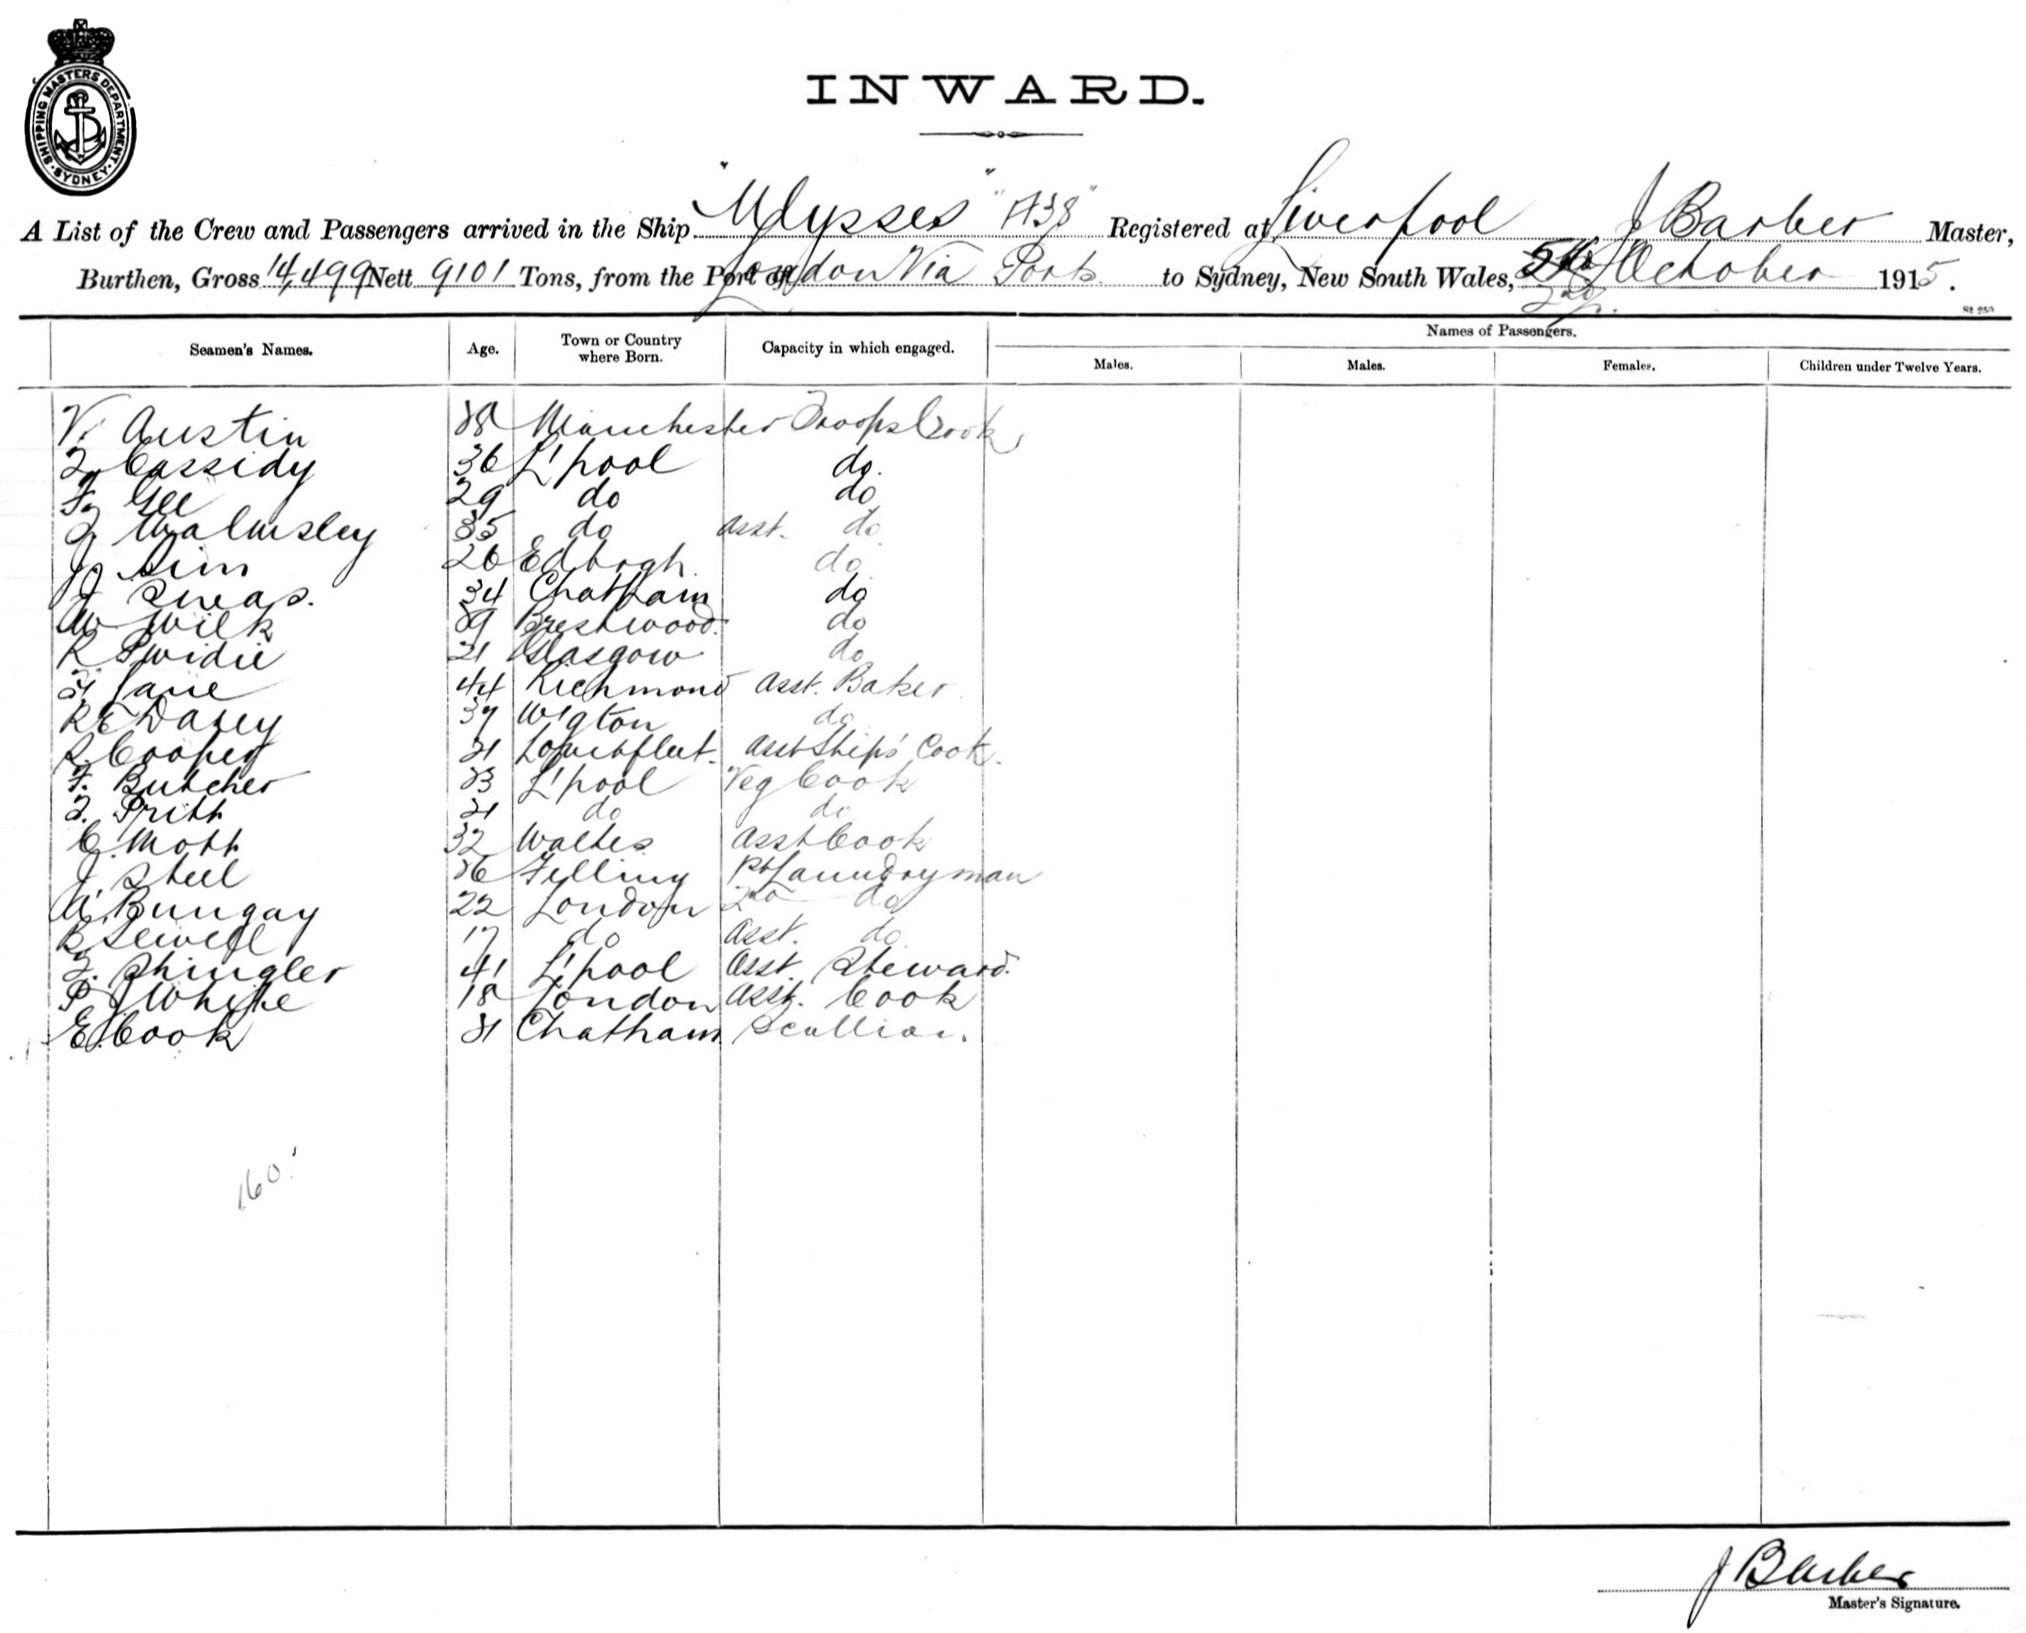 SHIPPING MASTERS DEPARTMENT · SYDNEY ·
INWARD.
A List of the Crew and Passengers arrived in the Ship "Ulysses" "A38" Registered at Liverpool J Barber Master,
Burthen, Gross 14,499 Nett 9101 Tons, from the Port of London Via Ports to Sydney, New South Wales, 5th October 1915.
2nd
Names of Passengers.
Seamen's Names. Age. Town or Country where Born. Capacity in which engaged. Males. Males. Females. Children under Twelve Years.
V. Austin 38 Manchester Troops Cook
Cassidy 36 L'pool do.
F. Gee 29 do do
Walmsley 35 do asst. do
J. Sim 26 Edbrgh. do
J do 34 Chatham do
W Wilk 39 Brestwood. do
R 21 Glasgow do
Jane 44 Richmond asst. Baker
RE Davey 37 Wigton do
Cooper 21 asst Ship's Cook.
F. Butcher 33 L'pool Veg Cook
Pritt 21 do do
C. Mott 32 Asst Cook
J. Steel 36 Felling Laundryman
Bungay 22 London 2nd do
Sewell 17 do Asst. do
Shingler 41 L'pool Asst. Steward.
P J White 18 London Asst. Cook
E. Cook 31 Chatham Scullion.
160
J Barber
Master's Signature.